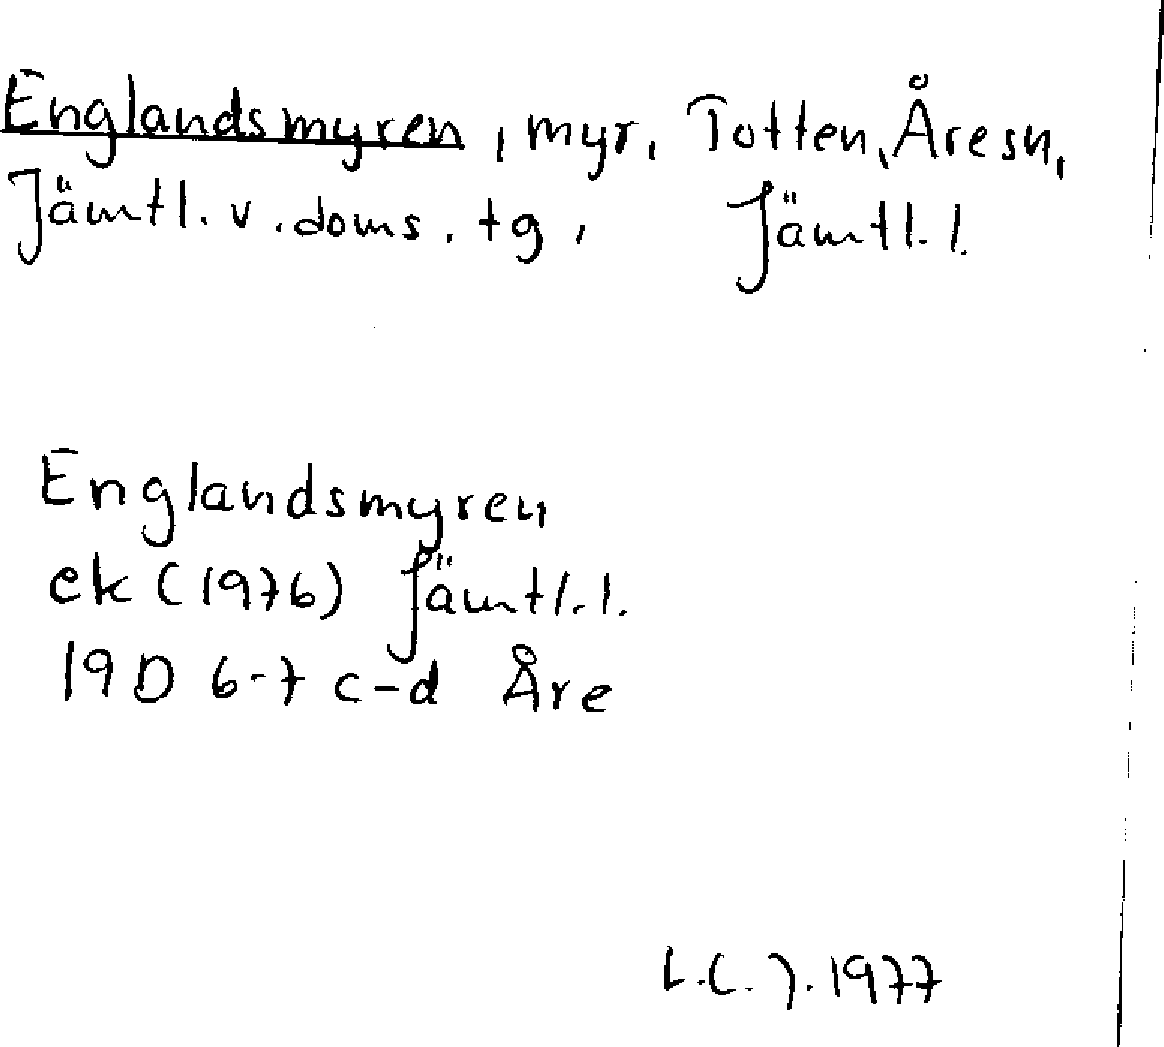 Englandsmyren, myr, Totten, Åresn,
Jämtl. v. doms. tg, Jämtl. l.
Englandsmyren
ek (1976) Jämtl. l.
19D 6-7 c-d Åre
L.C.J. 1977